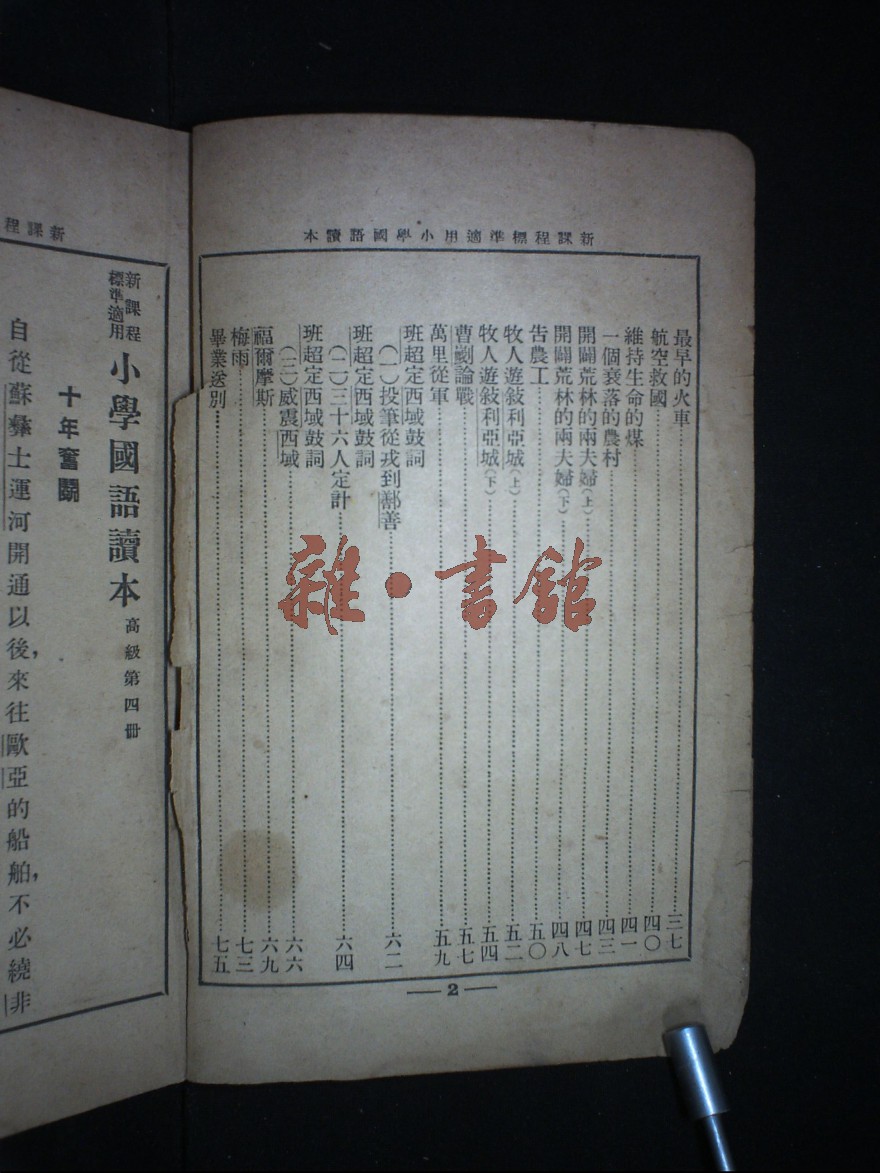 新課程標準適用小學國語讀本
最早的火車……三七
航空救國……四〇
維持生命的煤……四一
一個衰落的農村……四三
開闢荒林的兩夫婦(上)……四七
開闢荒林的兩夫婦(下)……四八
告農工……五〇
牧人遊敍利亞城(上)……五二
牧人遊敍利亞城(下)……五四
曹劌論戰……五七
萬里從軍……五九
班超定西域鼓詞
(一)投筆從戎到鄯善……六二
班超定西域鼓詞
(二)三十六人定計……六四
班超定西域鼓詞
(三)威震西域……六六
福爾摩斯……六九
梅雨……七三
畢業送別……七五
2
雜·書館
新課程
新課程標準適用
小學國語讀本 高級第四冊
十年奮鬭
自從蘇彝士運河開通以後,來往歐亞的船舶,不必繞非